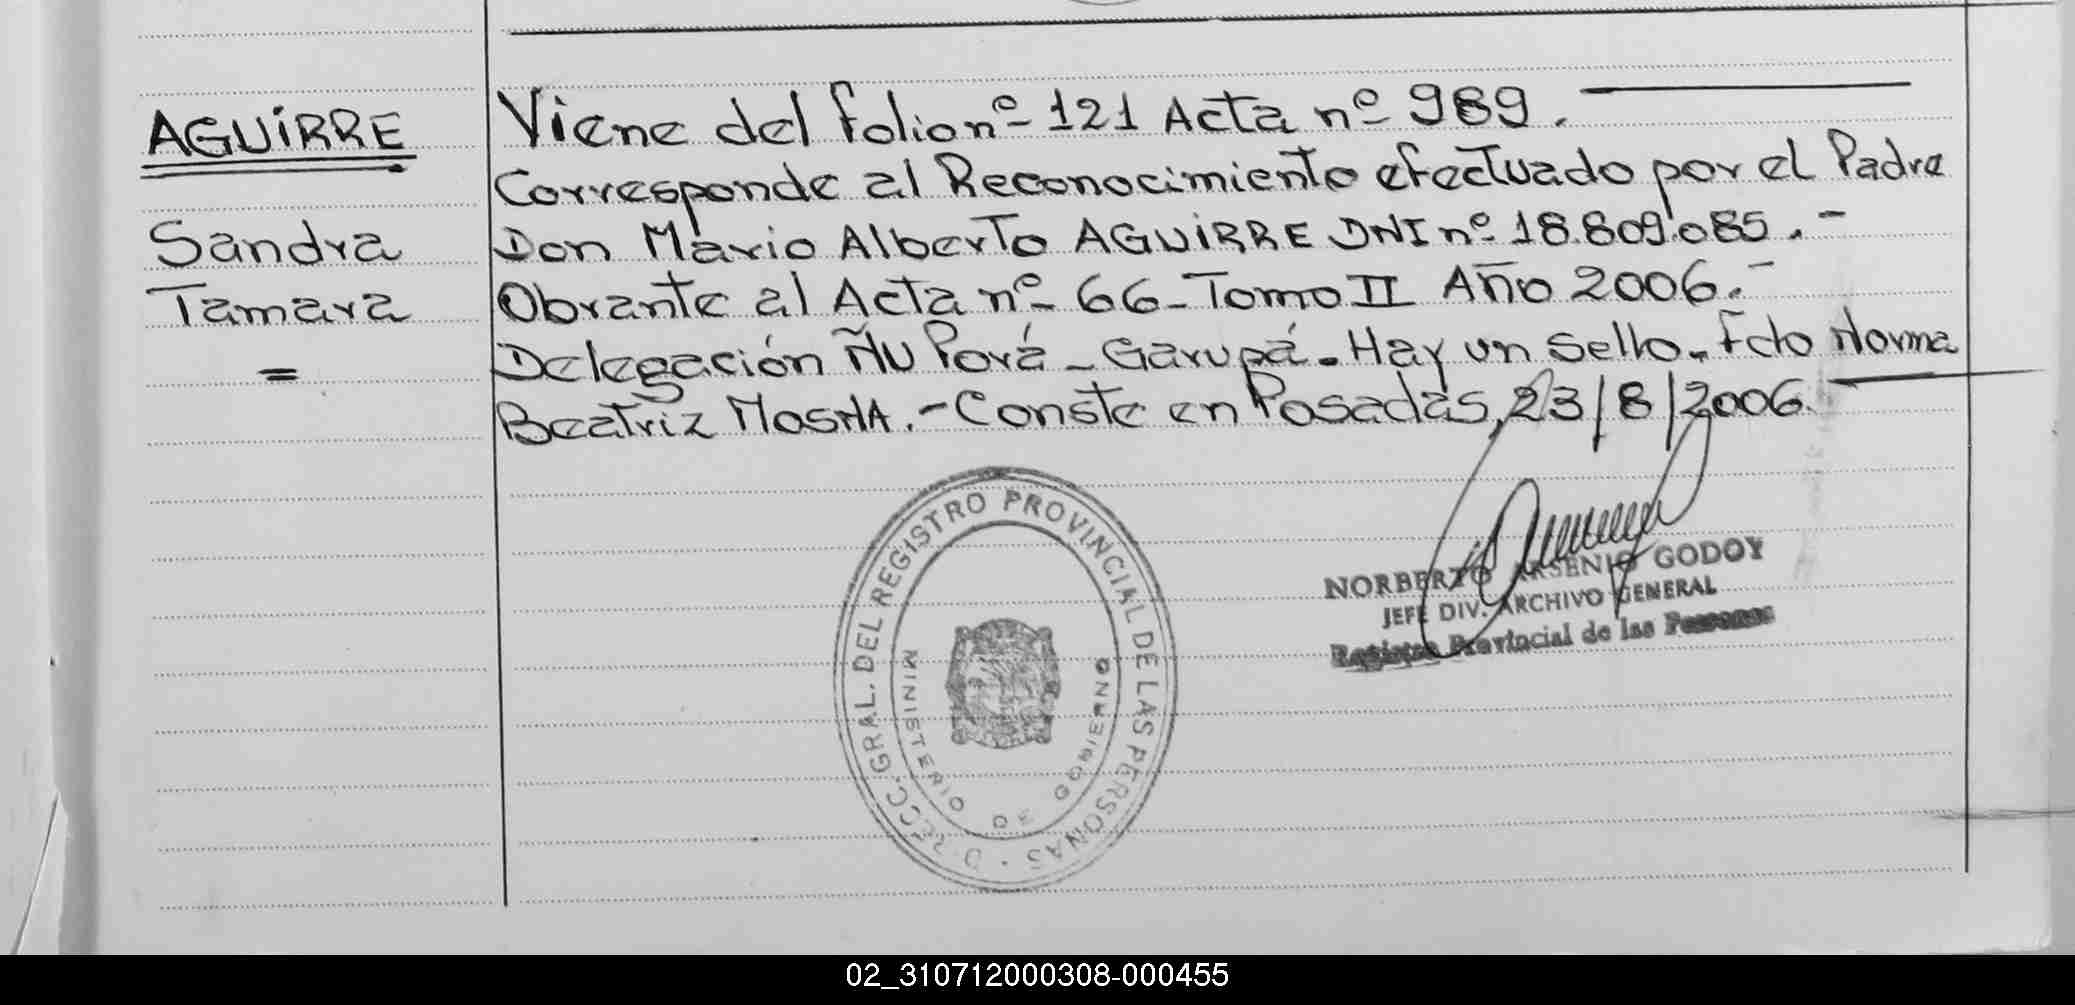 AGUIRRE
Sandra
Tamara
=
Viene del folio nº 121 Acta nº 989.
Corresponde al Reconocimiento efectuado por el Padre
Don Mario Alberto AGUIRRE DNI nº 18.809.085. -
Obrante al Acta nº 66 - Tomo II Año 2006. -
Delegación Ñu Porá - Garupá. Hay un sello. Fdo Norma
Beatriz . - Conste en Posadas, 23/8/2006.
DIRECC. GRAL. DEL REGISTRO PROVINCIAL DE LAS PERSONAS
MINISTERIO DE GOBIERNO
NORBERTO ARSENIO GODOY
JEFE DIV. ARCHIVO GENERAL
Registro Provincial de las Personas
02_310712000308-000455